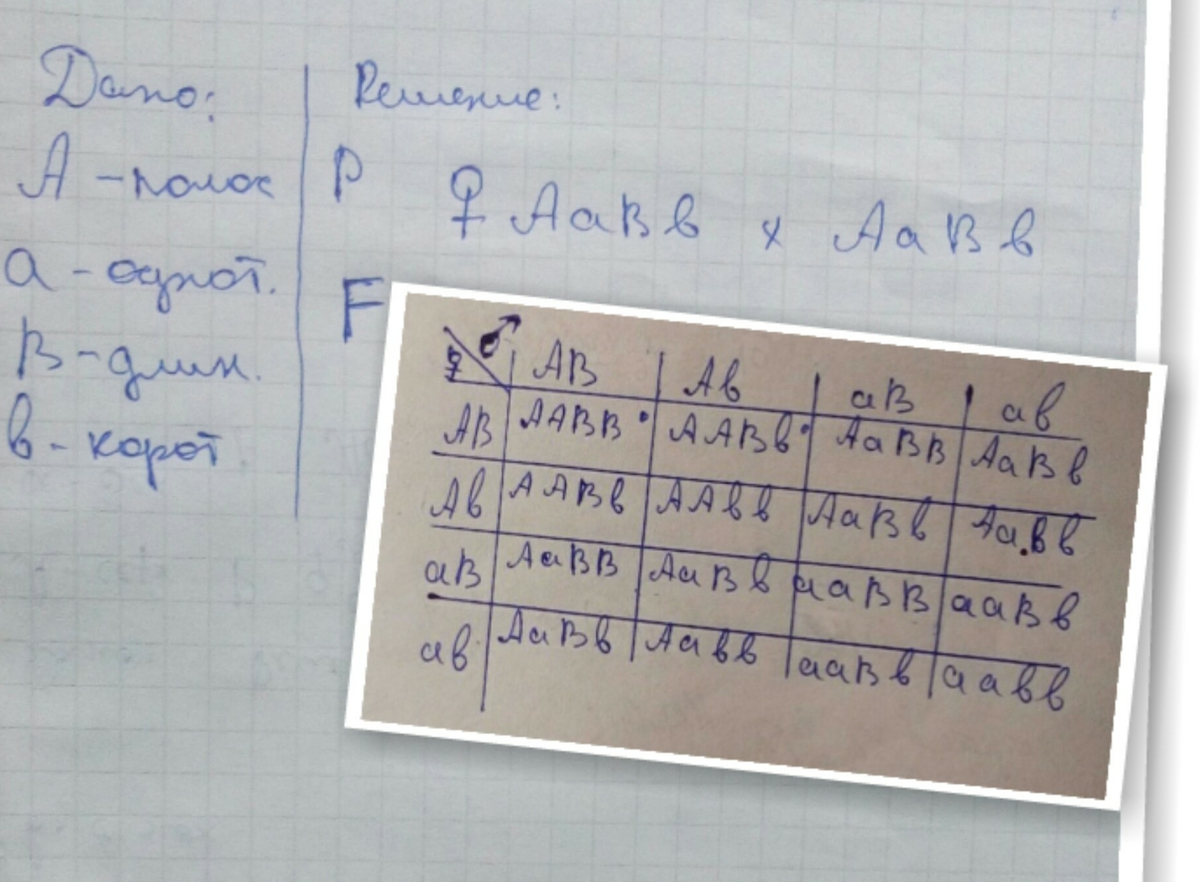 Дано:
Решение:
А - полос
а - однот.
В - длин.
в - корот
Р ♀ АаВв х АаВв
F
♀ ♂ АВ Ав аВ ав
АВ ААВВ ААВв АаВВ АаВв
Ав ААВв ААвв АаВв Аа.вв
аВ АаВВ АаВв ааВВ ааВв
ав АаВв Аавв ааВв аавв